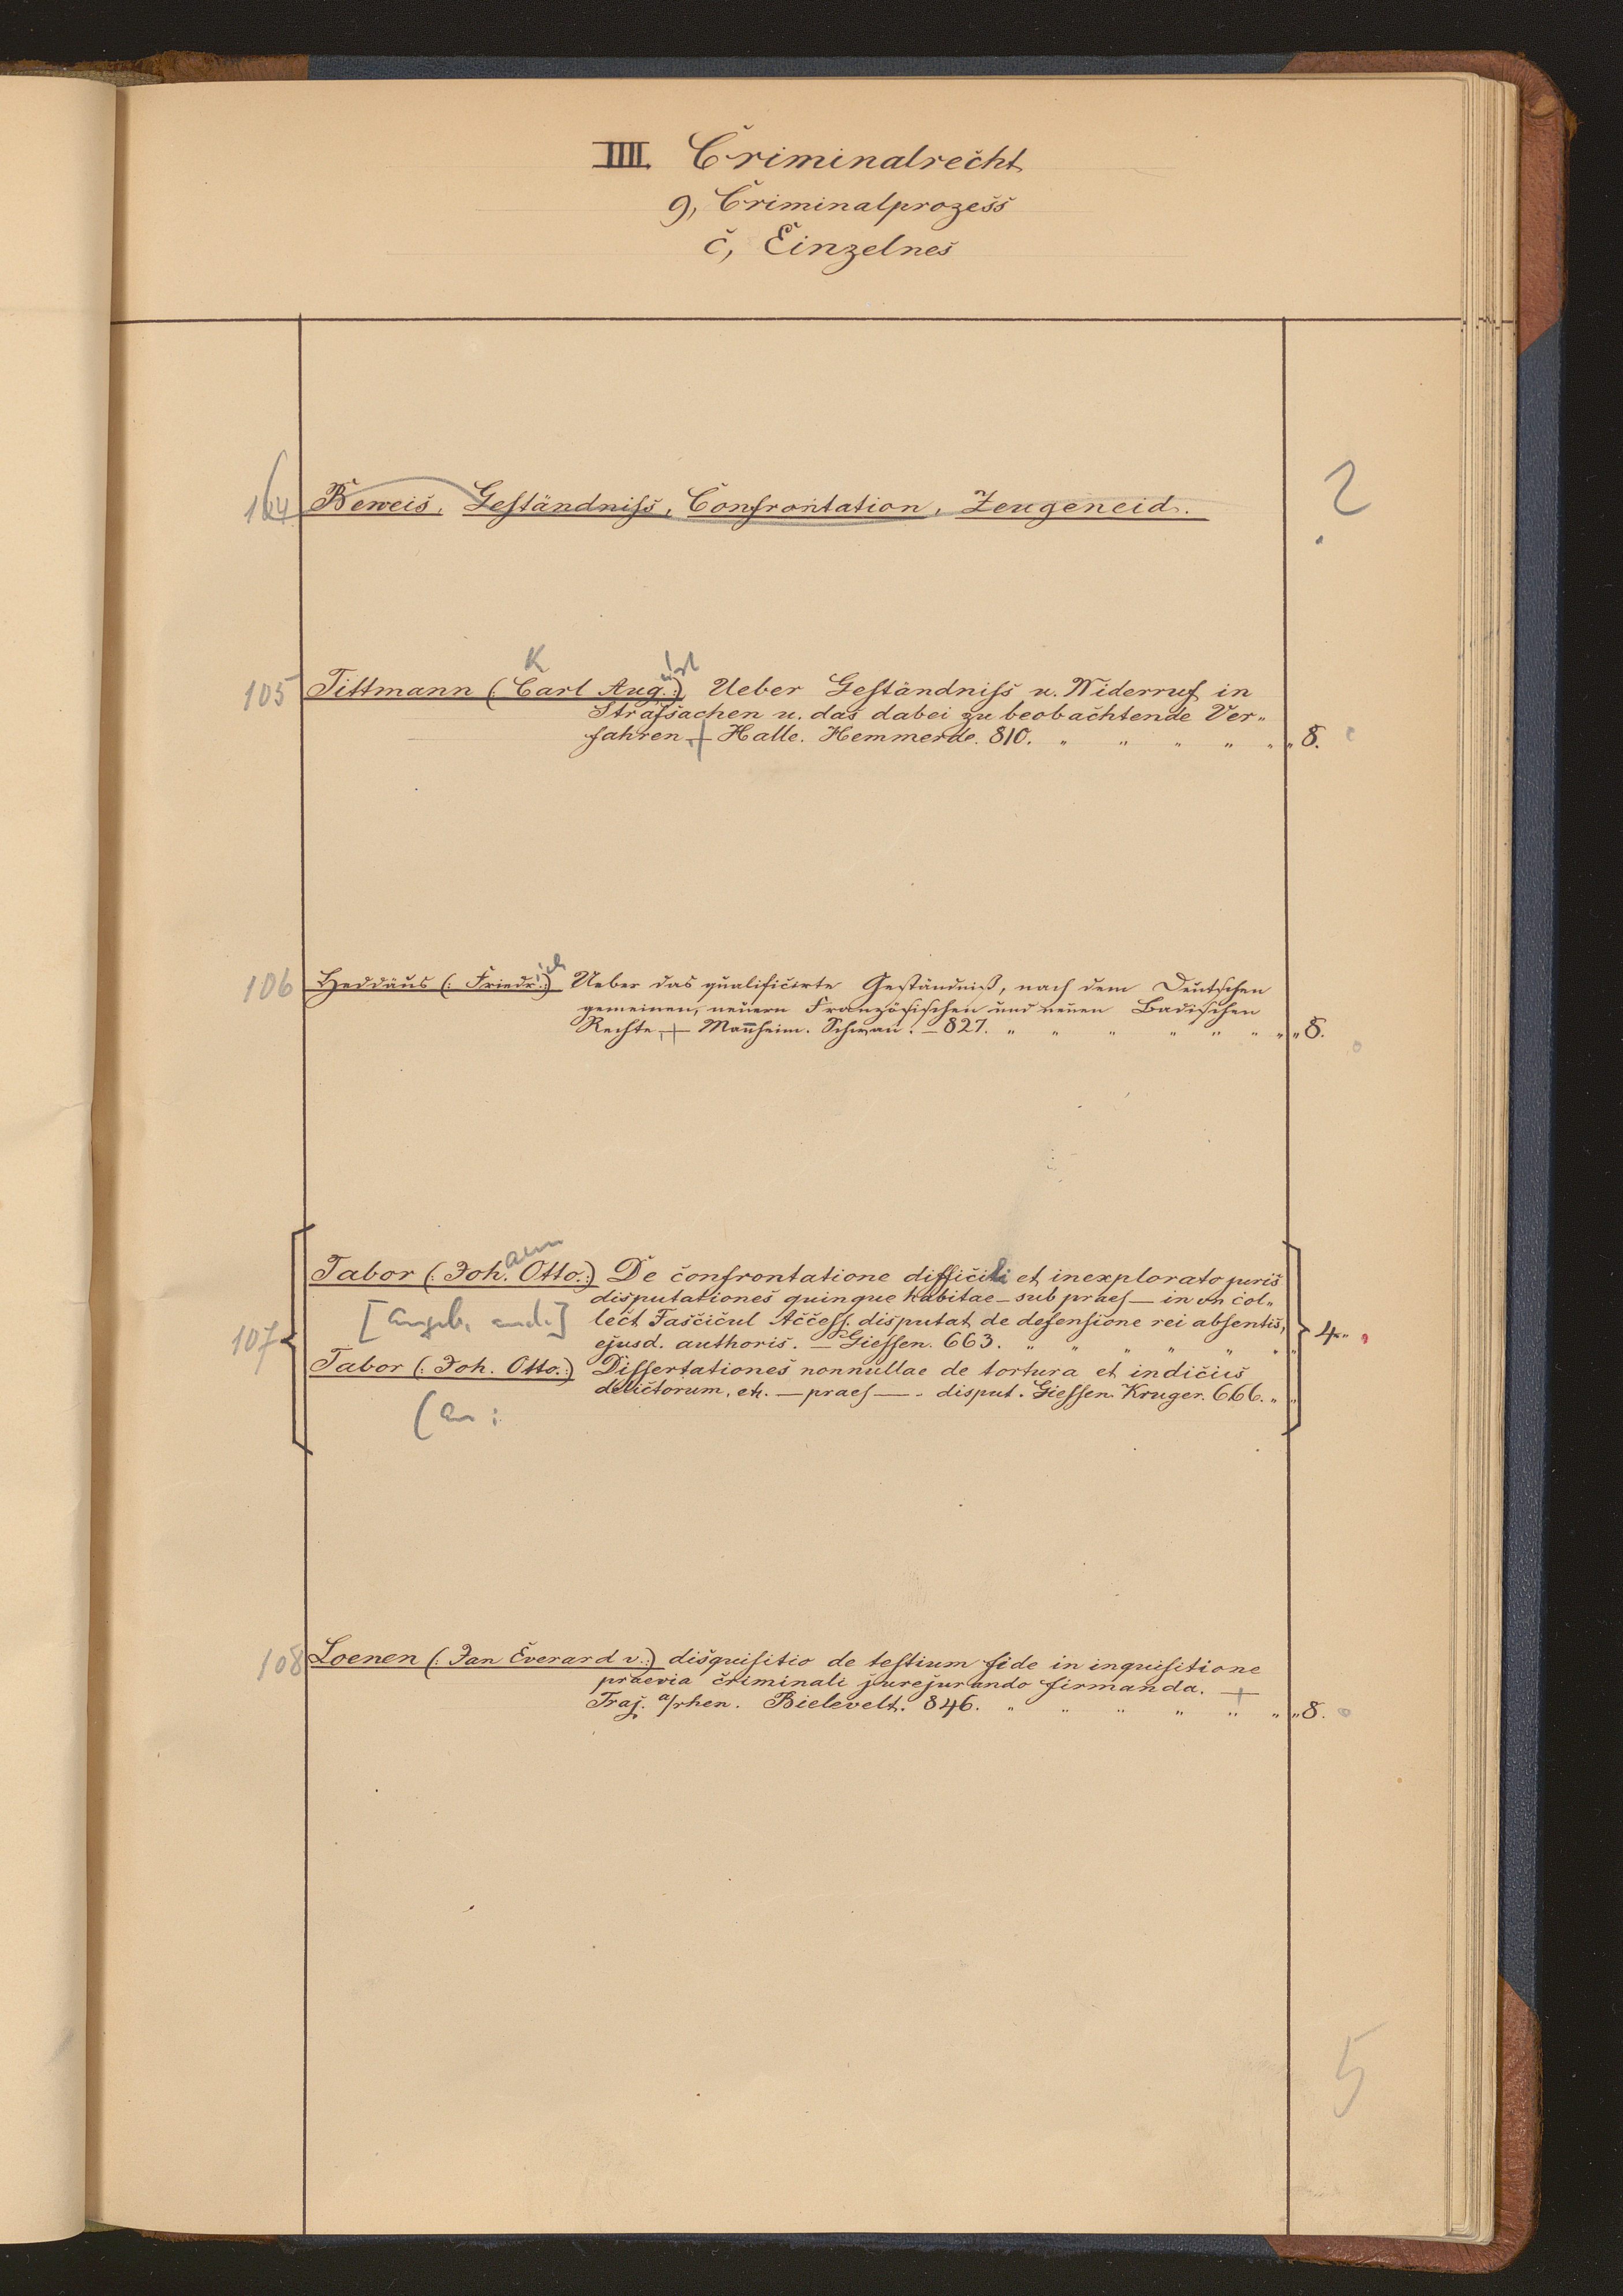 IIII. Criminalrecht
9, Criminalprozess
c, Einzelnes
104 Beweis, Geständniss, Confrontation, Zeugeneid. ?
K ust
105 Tittmann (: Carl Aug.:) Ueber Geständniss u. Widerruf in
Strafsachen u. das dabei zu beobachtende Ver„
fahren. + Halle. Hemmerde. 810. „ „ „ „ „ „ 8.
ich
106 Heddäus (: Friedr.:) Ueber das qualificirte Geständniß, nach dem Deutschen
gemeinen, neuern Französischen und neuen Badischen
Rechte. + Mannheim. Schwan. – 827. „ „ „ „ „ „ „ „ 8.
ann
Tabor (: Joh. Otto.:) De confrontatione difficili et inexplorato juris
disputationes quinque habitae – sub praes – in un col„
[angeb. and.] lect Fascicul Access. disputat de defensione rei absentis,
107 ejusd. authoris. – Giessen. 663. „ „ „ „ „ „ 4.
Tabor (: Joh. Otto.:) Dissertationes nonnullae de tortura et indiciis
delictorum, etc. – praes – . disput. Giessen. Kruger. 666. „ „
(an :
108 Loenen (: Jan Everard v.:) disquisitio de testium fide in inquisitione
praevia criminali jurejurando firmanda. +
Traj. a/rhen. Bielevelt. 846. „ „ „ „ „ „ „ 8.
5